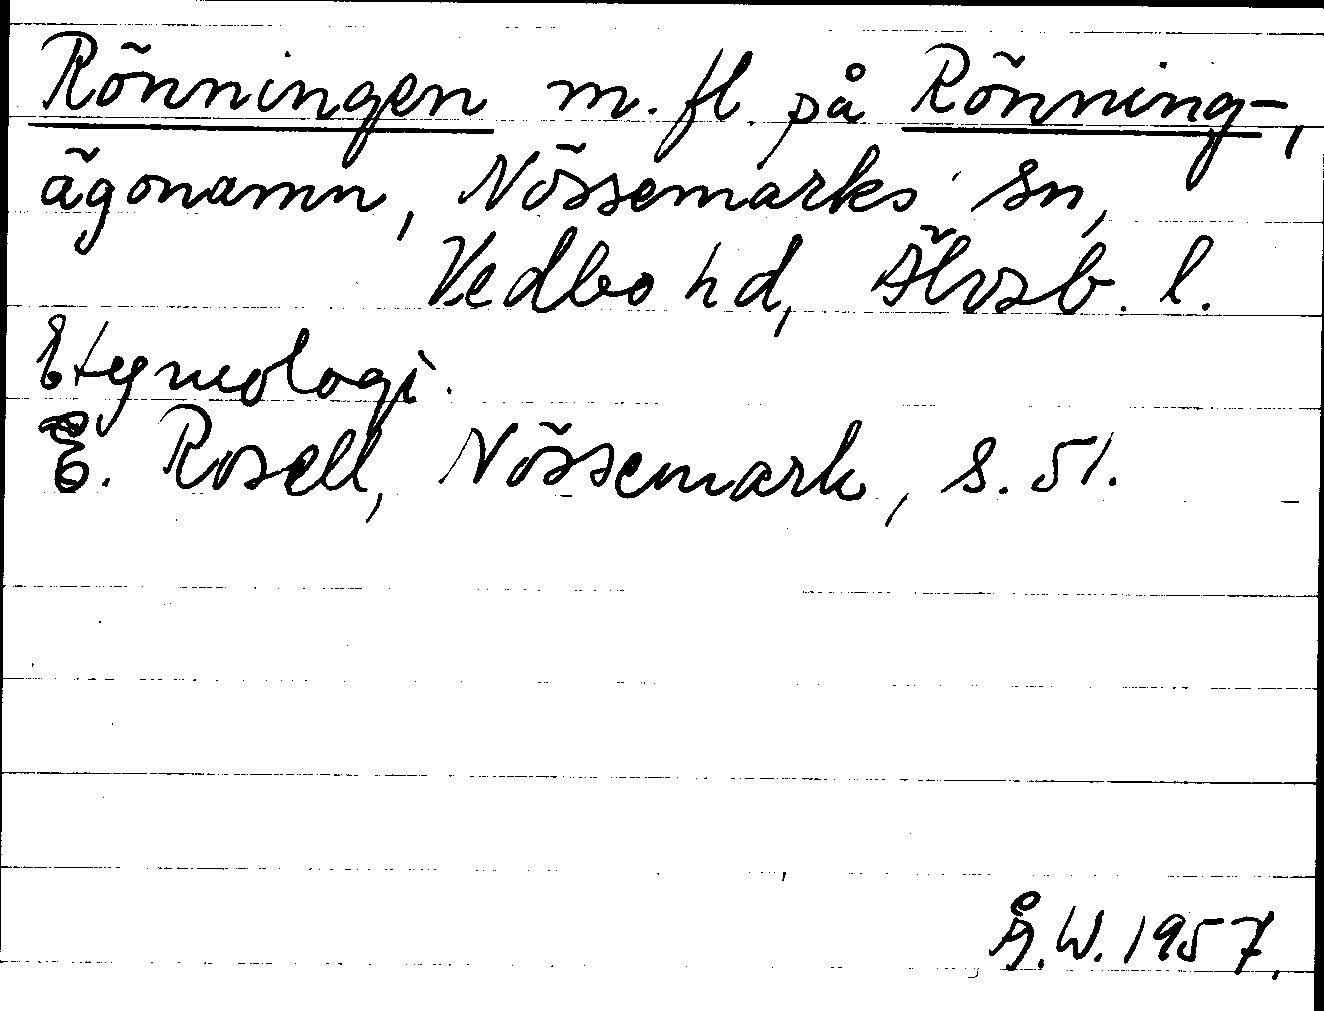 Rönningen m. fl. på Rönning-,
ägonamn, Nössemarks sn,
Vedbo hd, Älvsb. l.
Etymologi.
E. Rosell, Nössemark, s. 51.
Å.W. 1957.